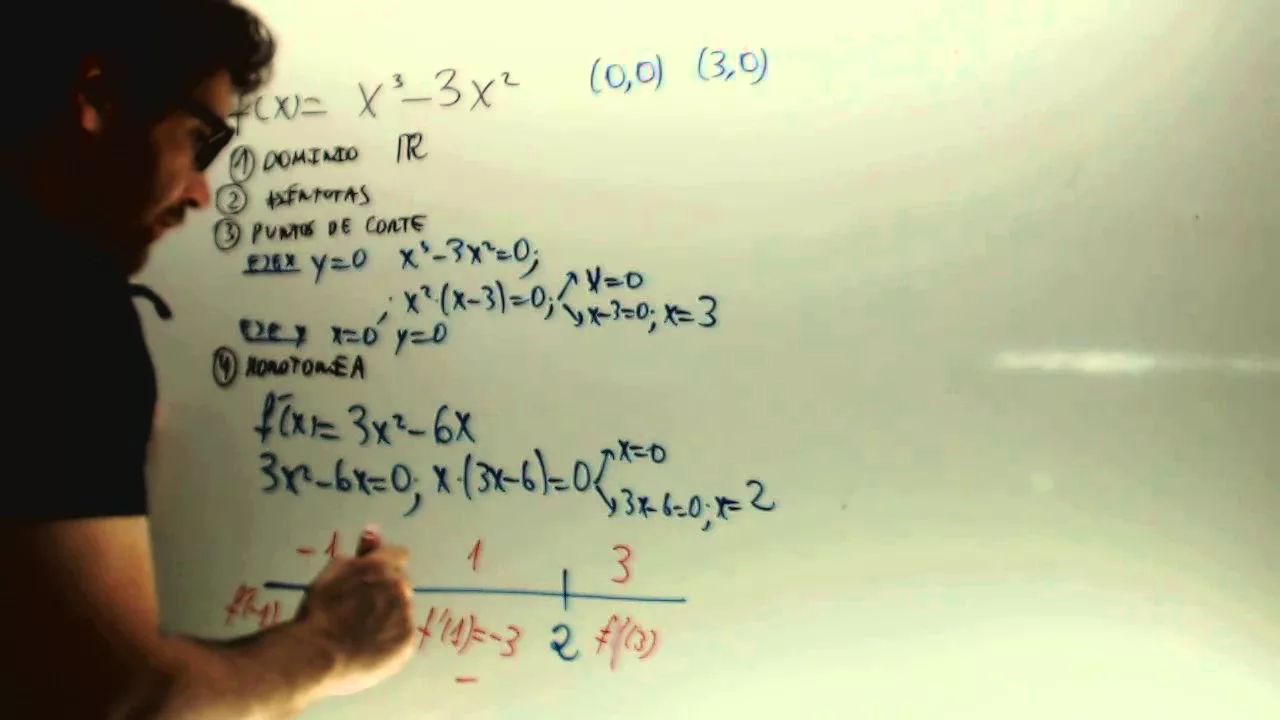 f(x)= x³-3x² (0,0) (3,0)
① DOMINIO ℝ
② ASÍNTOTAS
③ PUNTOS DE CORTE
EJE X y=0 x³-3x²=0;
; x²·(x-3)=0; x=0
x-3=0; x=3
EJE y x=0 y=0
④ MONOTONÍA
f'(x)= 3x²-6x
3x²-6x=0; x·(3x-6)=0 x=0
3x-6=0; x=2
-1 1 3
f'(-1) f'(1)=-3 2 f'(3)
-